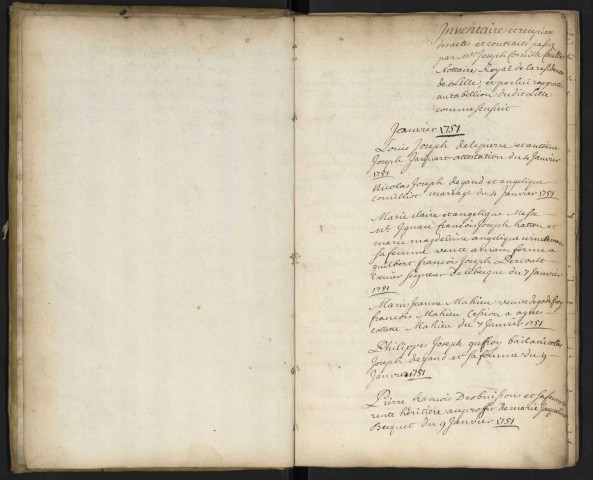 Inventaire et
des actes et contracts passez
par Me Joseph
Nottaire Royal de la residence
de Lille, et par lui
au tabellion dudit Lille
comme sensuit
Janvier 1751
Louis Joseph delepierre et antoine
Joseph Jacquart attestation du 4 Janvier
1751
Nicolas Joseph degand et angelique
cornilliot mariage du 4 Janvier 1751
Marie claire et angelique
Mr Ignace francois Joseph hatton et
marie magdeleine angelique
sa femme vente a main ferme a
guilbert francois Joseph
Seigneur de lebecque du 7 Janvier
1751
Marie Jeanne Mahieu veuve de
francois Mahieu Cession a agnes
collette Mahieu du 7 Janvier 1751
Philippes Joseph bail a nicolas
Joseph degand et sa femme du 9
Janvier 1751
Pierre francois Desbuissons et sa femme
rente héritière au proffit de marie
Becquet du 9 Janvier 1751